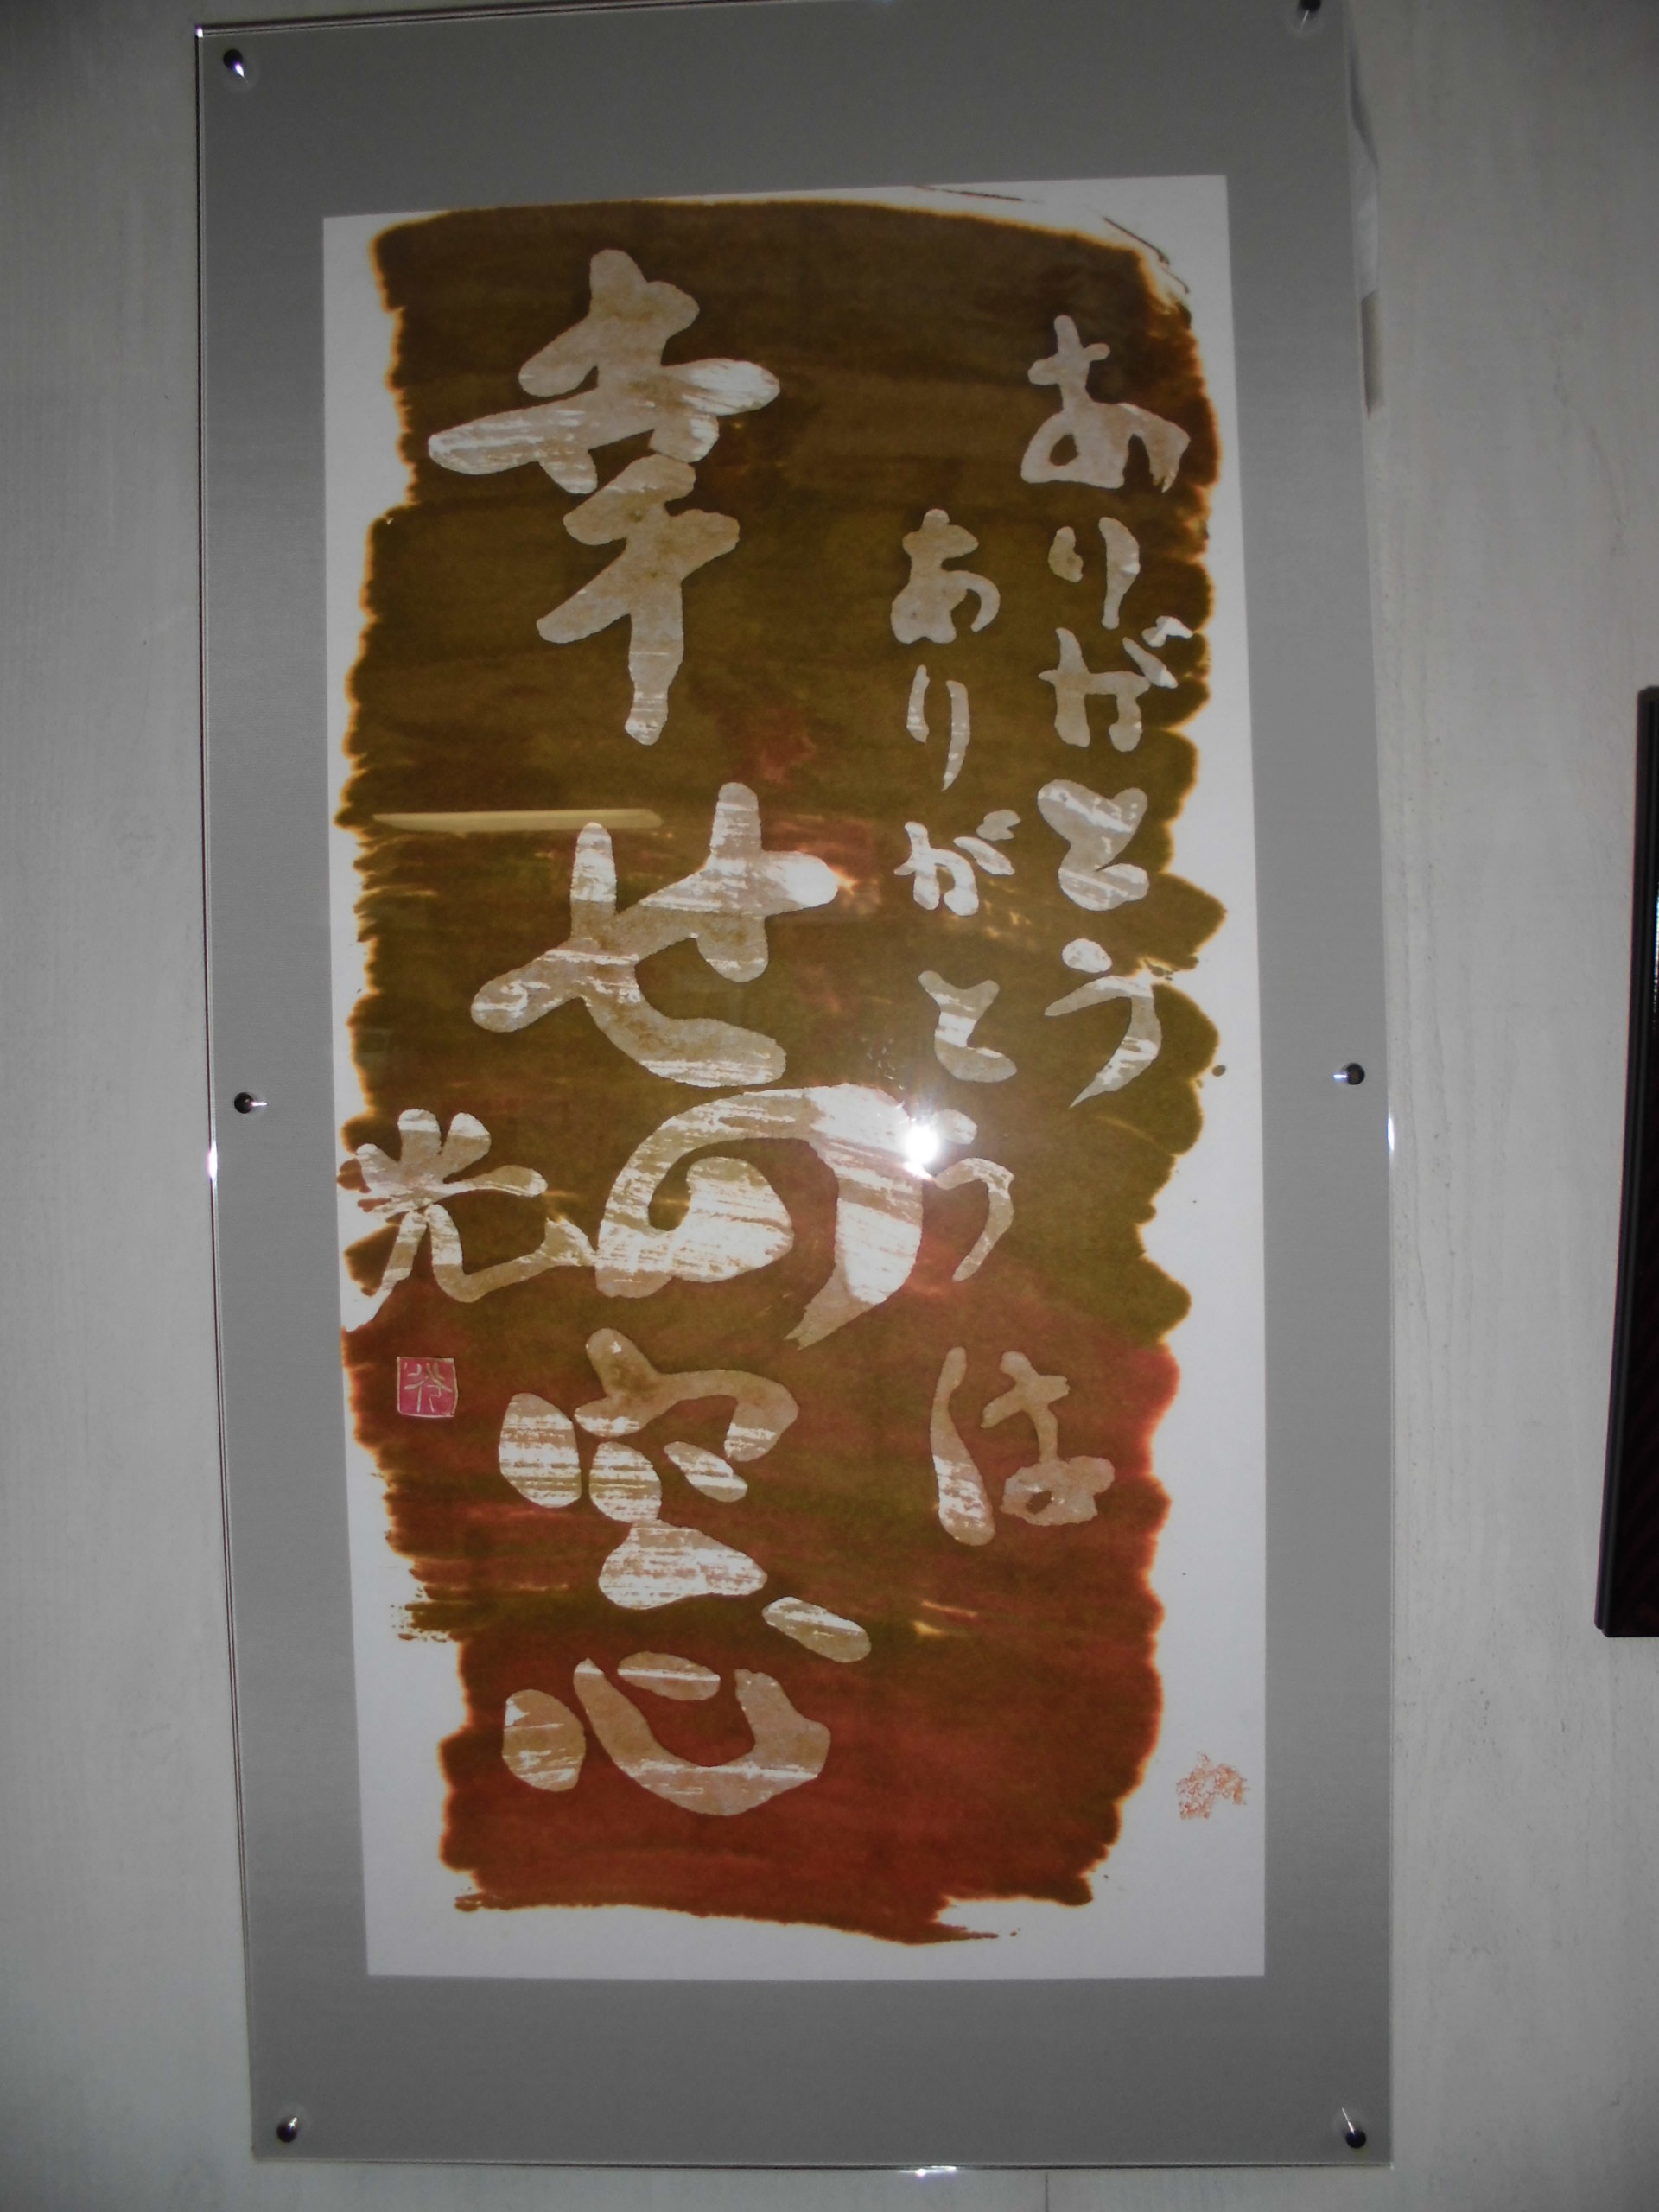 ありがとう
ありがとうは
幸せの窓
光